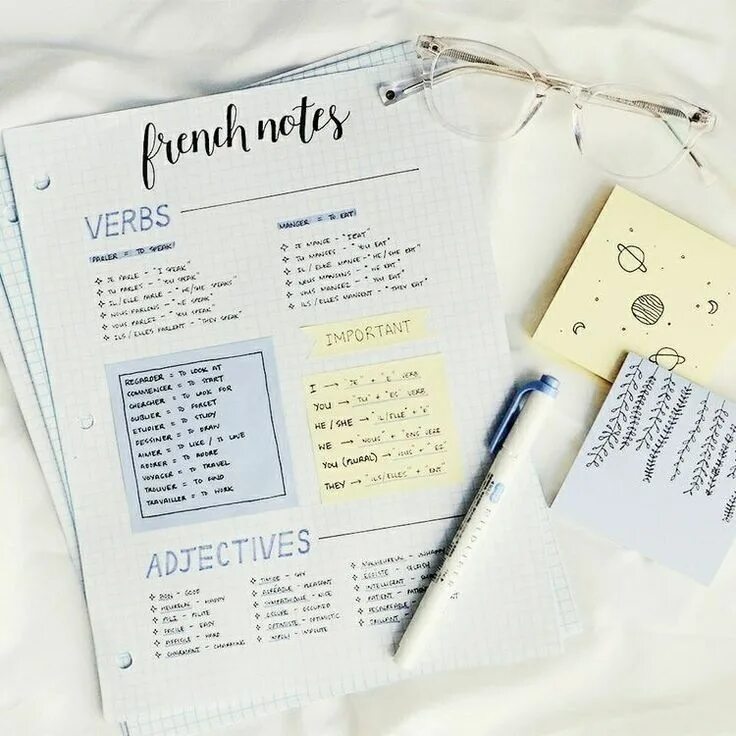 french notes
VERBS
PARLER = TO SPEAK!
JE PARLE - "I SPEAK"
TU PARLES - "YOU SPEAK"
IL/ELLE PARLE - "HE/SHE SPEAKS"
NOUS PARLONS - "WE SPEAK"
VOUS PARLEZ - "YOU SPEAK"
ILS/ELLES PARLENT - "THEY SPEAK"
MANGER = TO EAT!
JE MANGE - "I EAT"
TU MANGES - "YOU EAT"
IL/ELLE MANGE - "HE/SHE EAT"
NOUS MANGONS - "WE EAT"
VOUS MANGEZ - "YOU EAT"
ILS/ELLES MANGENT - "THEY EAT"
REGARDER = TO LOOK AT
COMMENCER = TO START
CHERCHER = TO LOOK FOR
OUBLIER = TO FORGET
ETUDIER = TO STUDY
DESSINER = TO DRAW
AIMER = TO LIKE / TO LOVE
ADORER = TO ADORE
VOYAGER = TO TRAVEL
TROUVER = TO FIND
TRAVAILLER = TO WORK
IMPORTANT
I → "JE" + "E" VERB
YOU → "TU" + "ES" VERB
HE/SHE → "IL/ELLE" + "E"
WE → "NOUS" + "ONS" VERB
YOU (PLURAL) → "VOUS" + "EZ"
THEY → "ILS/ELLES" + "ENT"
ADJECTIVES
BON - GOOD
HEUREUX - HAPPY
POLI - POLITE
FACILE - EASY
DIFFICILE - HARD
CHARMANT - CHARMING
TIMIDE - SHY
AGREABLE - PLEASANT
SYMPATHIQUE - NICE
OCCUPE - OCCUPIED
OPTIMISTE - OPTIMISTIC
IMPOLI - IMPOLITE
MALHEUREUX - UNHAPPY
EGOISTE - SELFISH
INTELLIGENT
PATIENT - PATIENT
BRILLANT